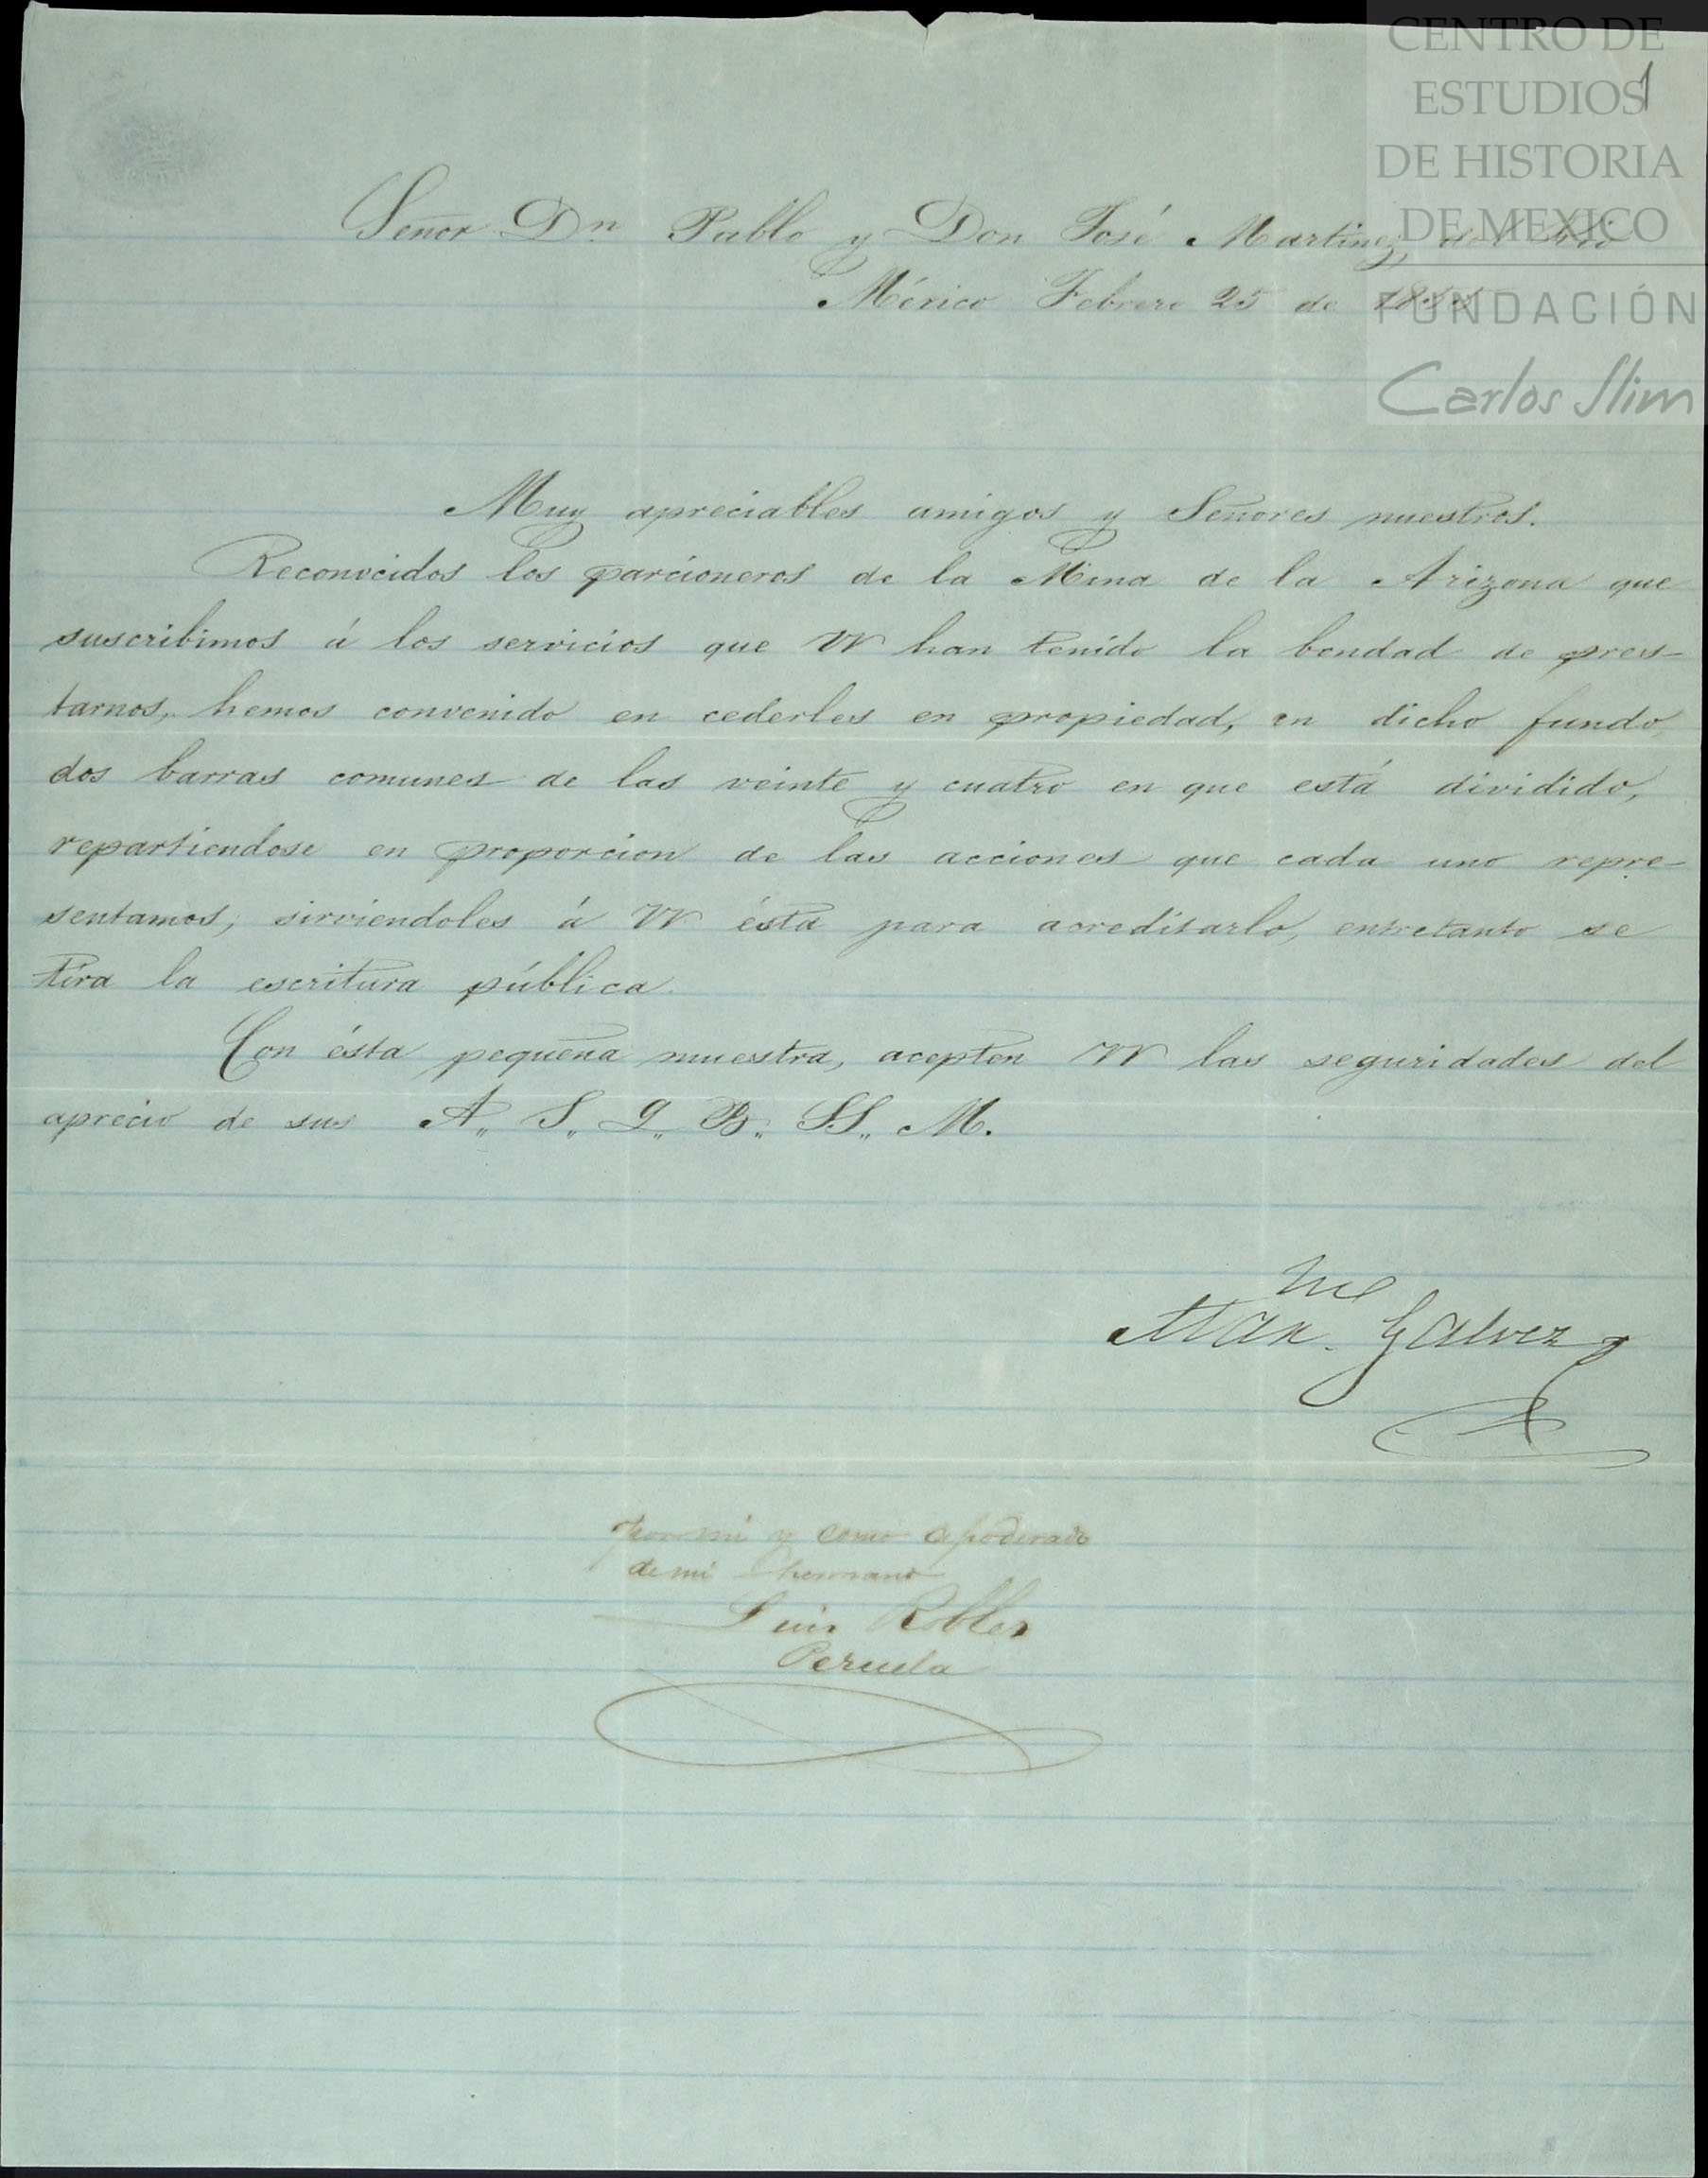 CENTRO DE
ESTUDIOS
DE HISTORIA
DE MEXICO
FUNDACIÓN
Carlos Slim
1
Señor Dn Pablo y Don José Martinez del Rio
México Febrero 25 de
Muy apreciables amigos y Señores nuestros.
Reconocidos los parcioneros de la Mina de la Arizona que
suscribimos á los servicios que VV han tenido la bondad de pres-
tarnos, hemos convenido en cederles en propiedad, en dicho fundo,
dos barras comunes de las veinte y cuatro en que está dividido,
repartiendose en proporcion de las acciones que cada uno repre-
sentamos, sirviendoles á VV ésta para acreditarlo, entretanto se
tira la escritura pública.
Con ésta pequeña muestra, acepten VV las seguridades del
aprecio de sus A,, S,, Q,, B,, SS,, M.
Man. Galvez
por mi y como apoderado
de mi hermano
Luis Robles
Pezuela